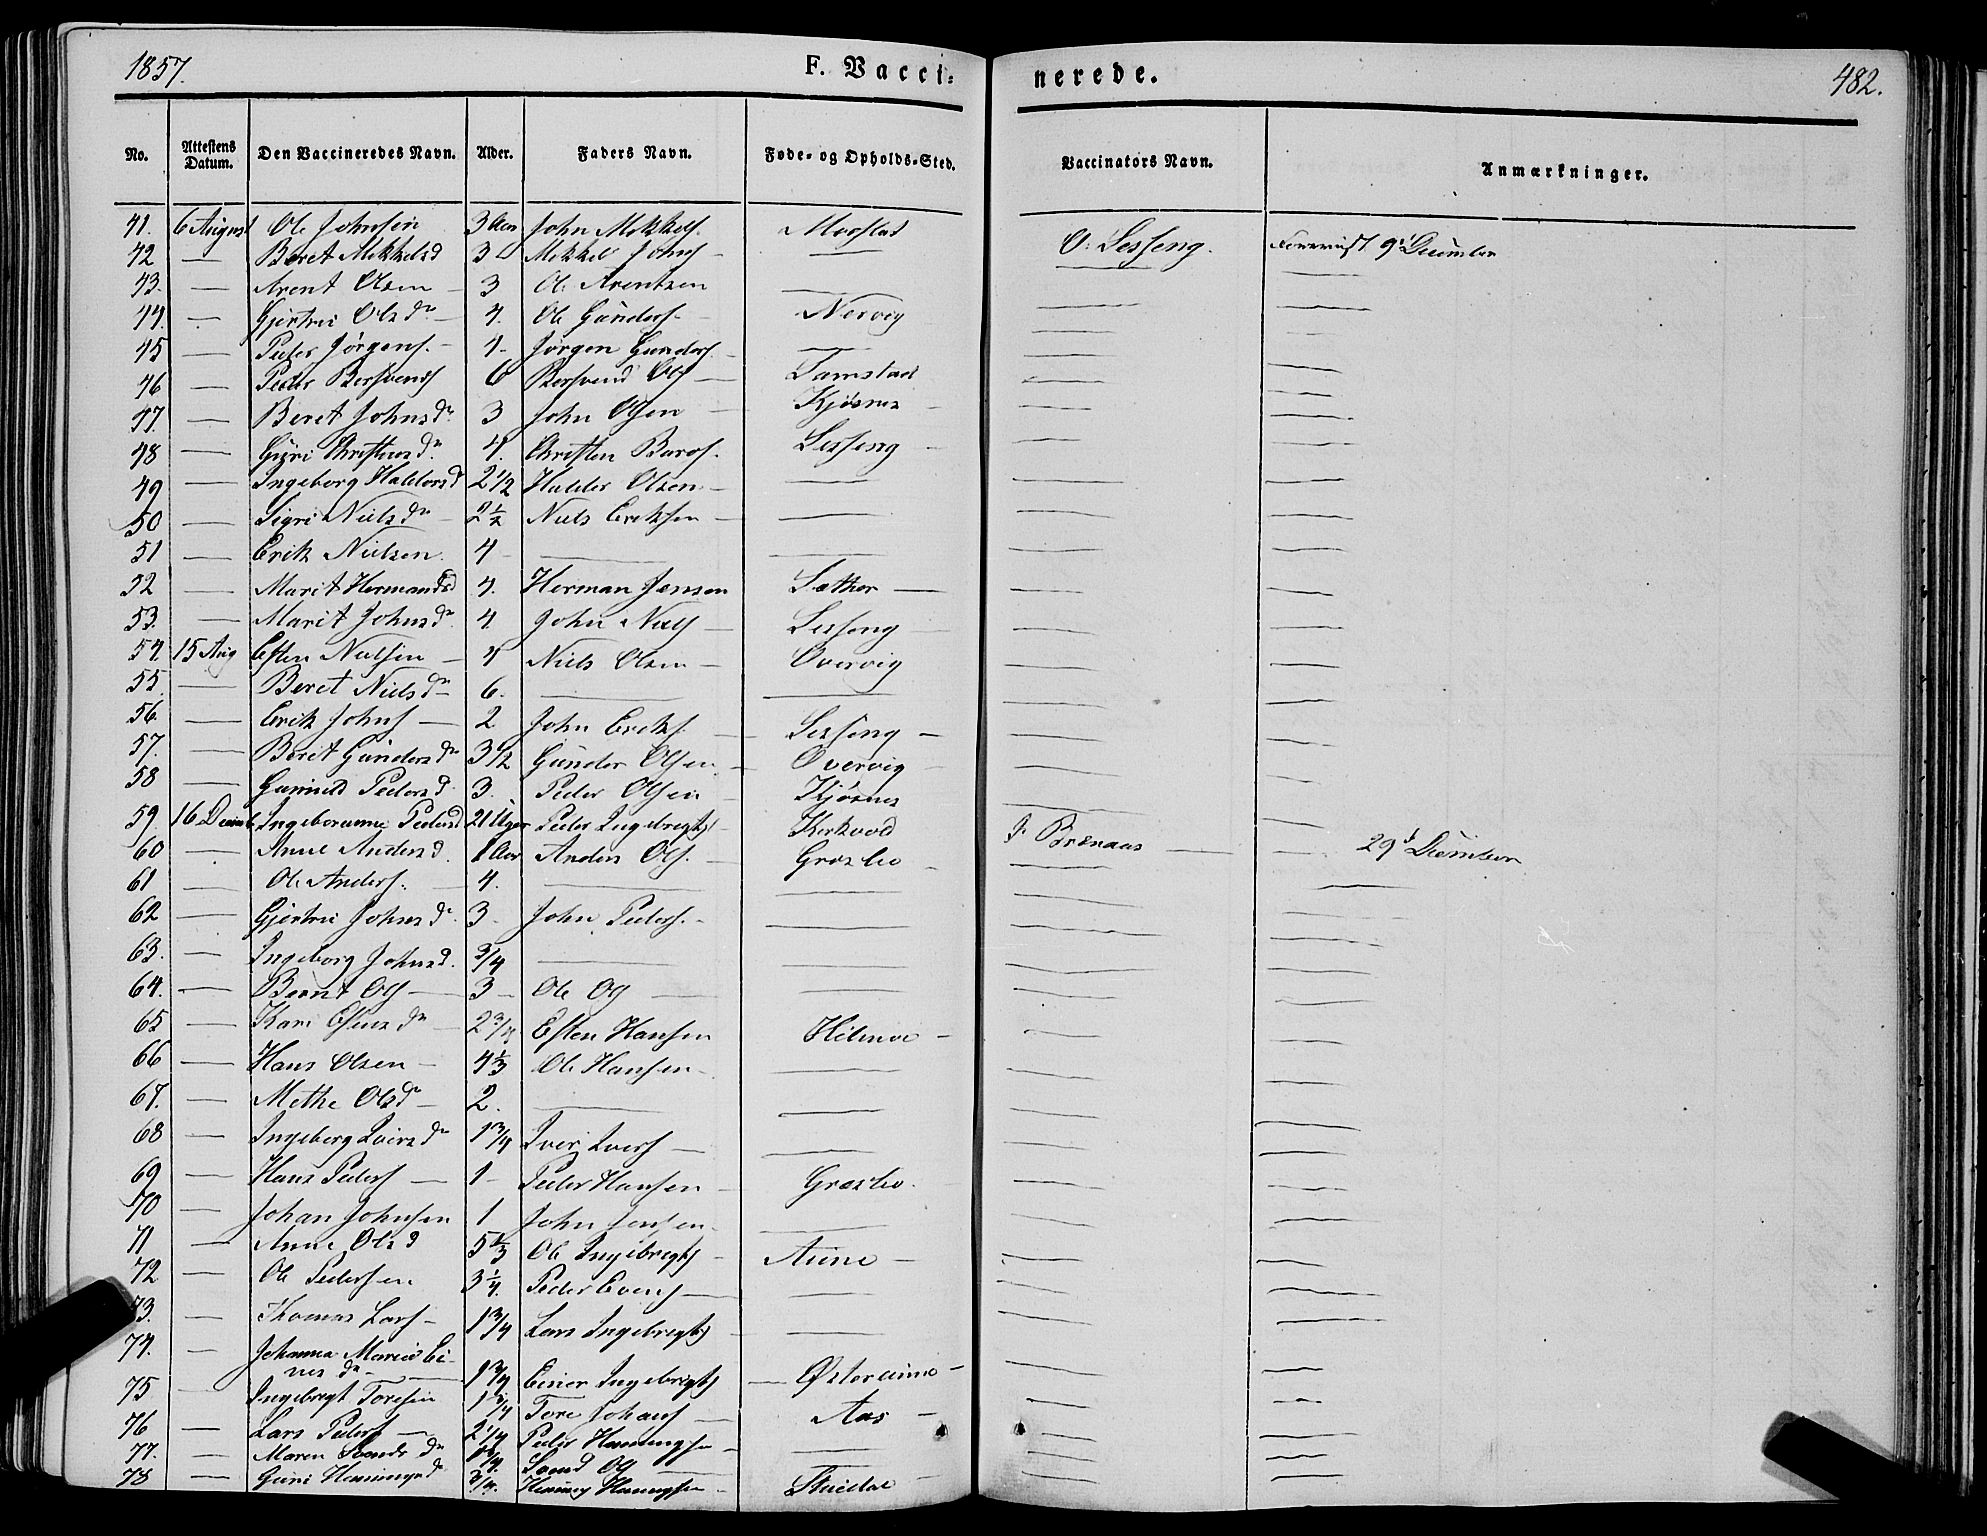 1857. F. Vacci- nerede. 482.
No. Attestens Datum. Den Vaccineredes Navn. Alder. Faders Navn. Føde- og Opholds-Sted. Vaccinators Navn. Anmærkninger.
41. 6 August Ole Johnsen 3 Aar John Mikkels. Moestad O. Lesseng. 9d December
42 — Beret Mikkelsd 3 Mikkel Johns — — —
43. — Arent Olsen — 3 Ole Arentsen — — —
44. — Gjertru Olsdr — 4. Ole Gunders. — Nervig — —
45 — Peder Jørgens. — 4 — Jørgen Gunders. — — — —
46 — Peder Borsvends 6 Borsvend Ols — Tamstad — —
47. — Beret Johnsdr 3 John Olsen — Kjøsnes — — —
48 — Guri Christensdr. 4. Christen Baros. Lesseng — — —
49 — Ingeborg Haldorsd 2 1/2 Haldor Olsen — — — —
50 — Sigri Nielsdr — 2 1/2 Niels Eriksen — — — —
51 — Erik Nielsen. 4 — — — — —
52 — Marit Hermandsd 4. Herman Jensen Sæther — — —
53. — Marit Johnsdr. 4. John Niels — Lesseng — — —
54. 15 Aug Esten Nielsen — 4 Niels Olsen — Overvig — —
55. — Beret Nielsdr — 6. — — — —
56. — Erik Johns — 2 John Eriks. — Lesseng — — —
57. — Beret Gundersdr 3 1/2 Gunder Olsen — Overvig — — —
58 — Gunild Pedersd. 3. Peder Olsen — Kjøsnes — —
59 16 Decemb Ingeboranne Pedersd 21 Uger Peder Ingebregts — Kirkvold J. Brænaas — — 29d December
60 — Anne Andersd. 1 Aar Anders Ols. — Græsbo — — —
61 — Ole Anders. — 4. — — — —
62 — Gjertru Johnsdr. 3 — John Peders. — — — —
63. — Ingeborg Johnsd. 3/4 — — — —
64. — Bernt Ols — 3 — Ole Ols — — — —
65 — Kari Estensdr — 2 3/4 Esten Hansen Hilmoe — — —
66 — Hans Olsen — 4 1/3 Ole Hansen — — — —
67. — Methe Olsdr — 2. — — — —
68 — Ingeborg Iversdr 1 3/4 Iver Ivers — — — —
69 — Hans Peders — 1 — Peder Hansen — Græsbo. — —
70 — Johan Johnsen 1 John Jensen — — — —
71 — Anne Olsd 5 1/3 Ole Ingebregts — Aune — — —
72 — Ole Pedersen 3 1/4. Peder Evens — — — —
73. — Thomas Lars — 1 3/4 Lars Ingebregts — — — —
74. — Johanna Marie Ei-
nersdr — 1 3/4 Einer Ingebregts — Østeraune — — —
75 — Ingebregt Toresen 1 3/4 Tore Johans — Aas — — —
76 — Lars Peders — 2 1/4 Peder Hemmingsen — — — —
77. — Maren Svendsdr 1 3/4. Svend Ols — — — —
78 — Guri Hemmingsd 3/4. Hemming Hemmingsen — — —